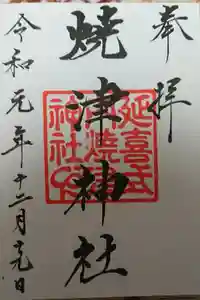 奉拝
延喜式内焼津神社
焼津神社
令和元年十二月十九日